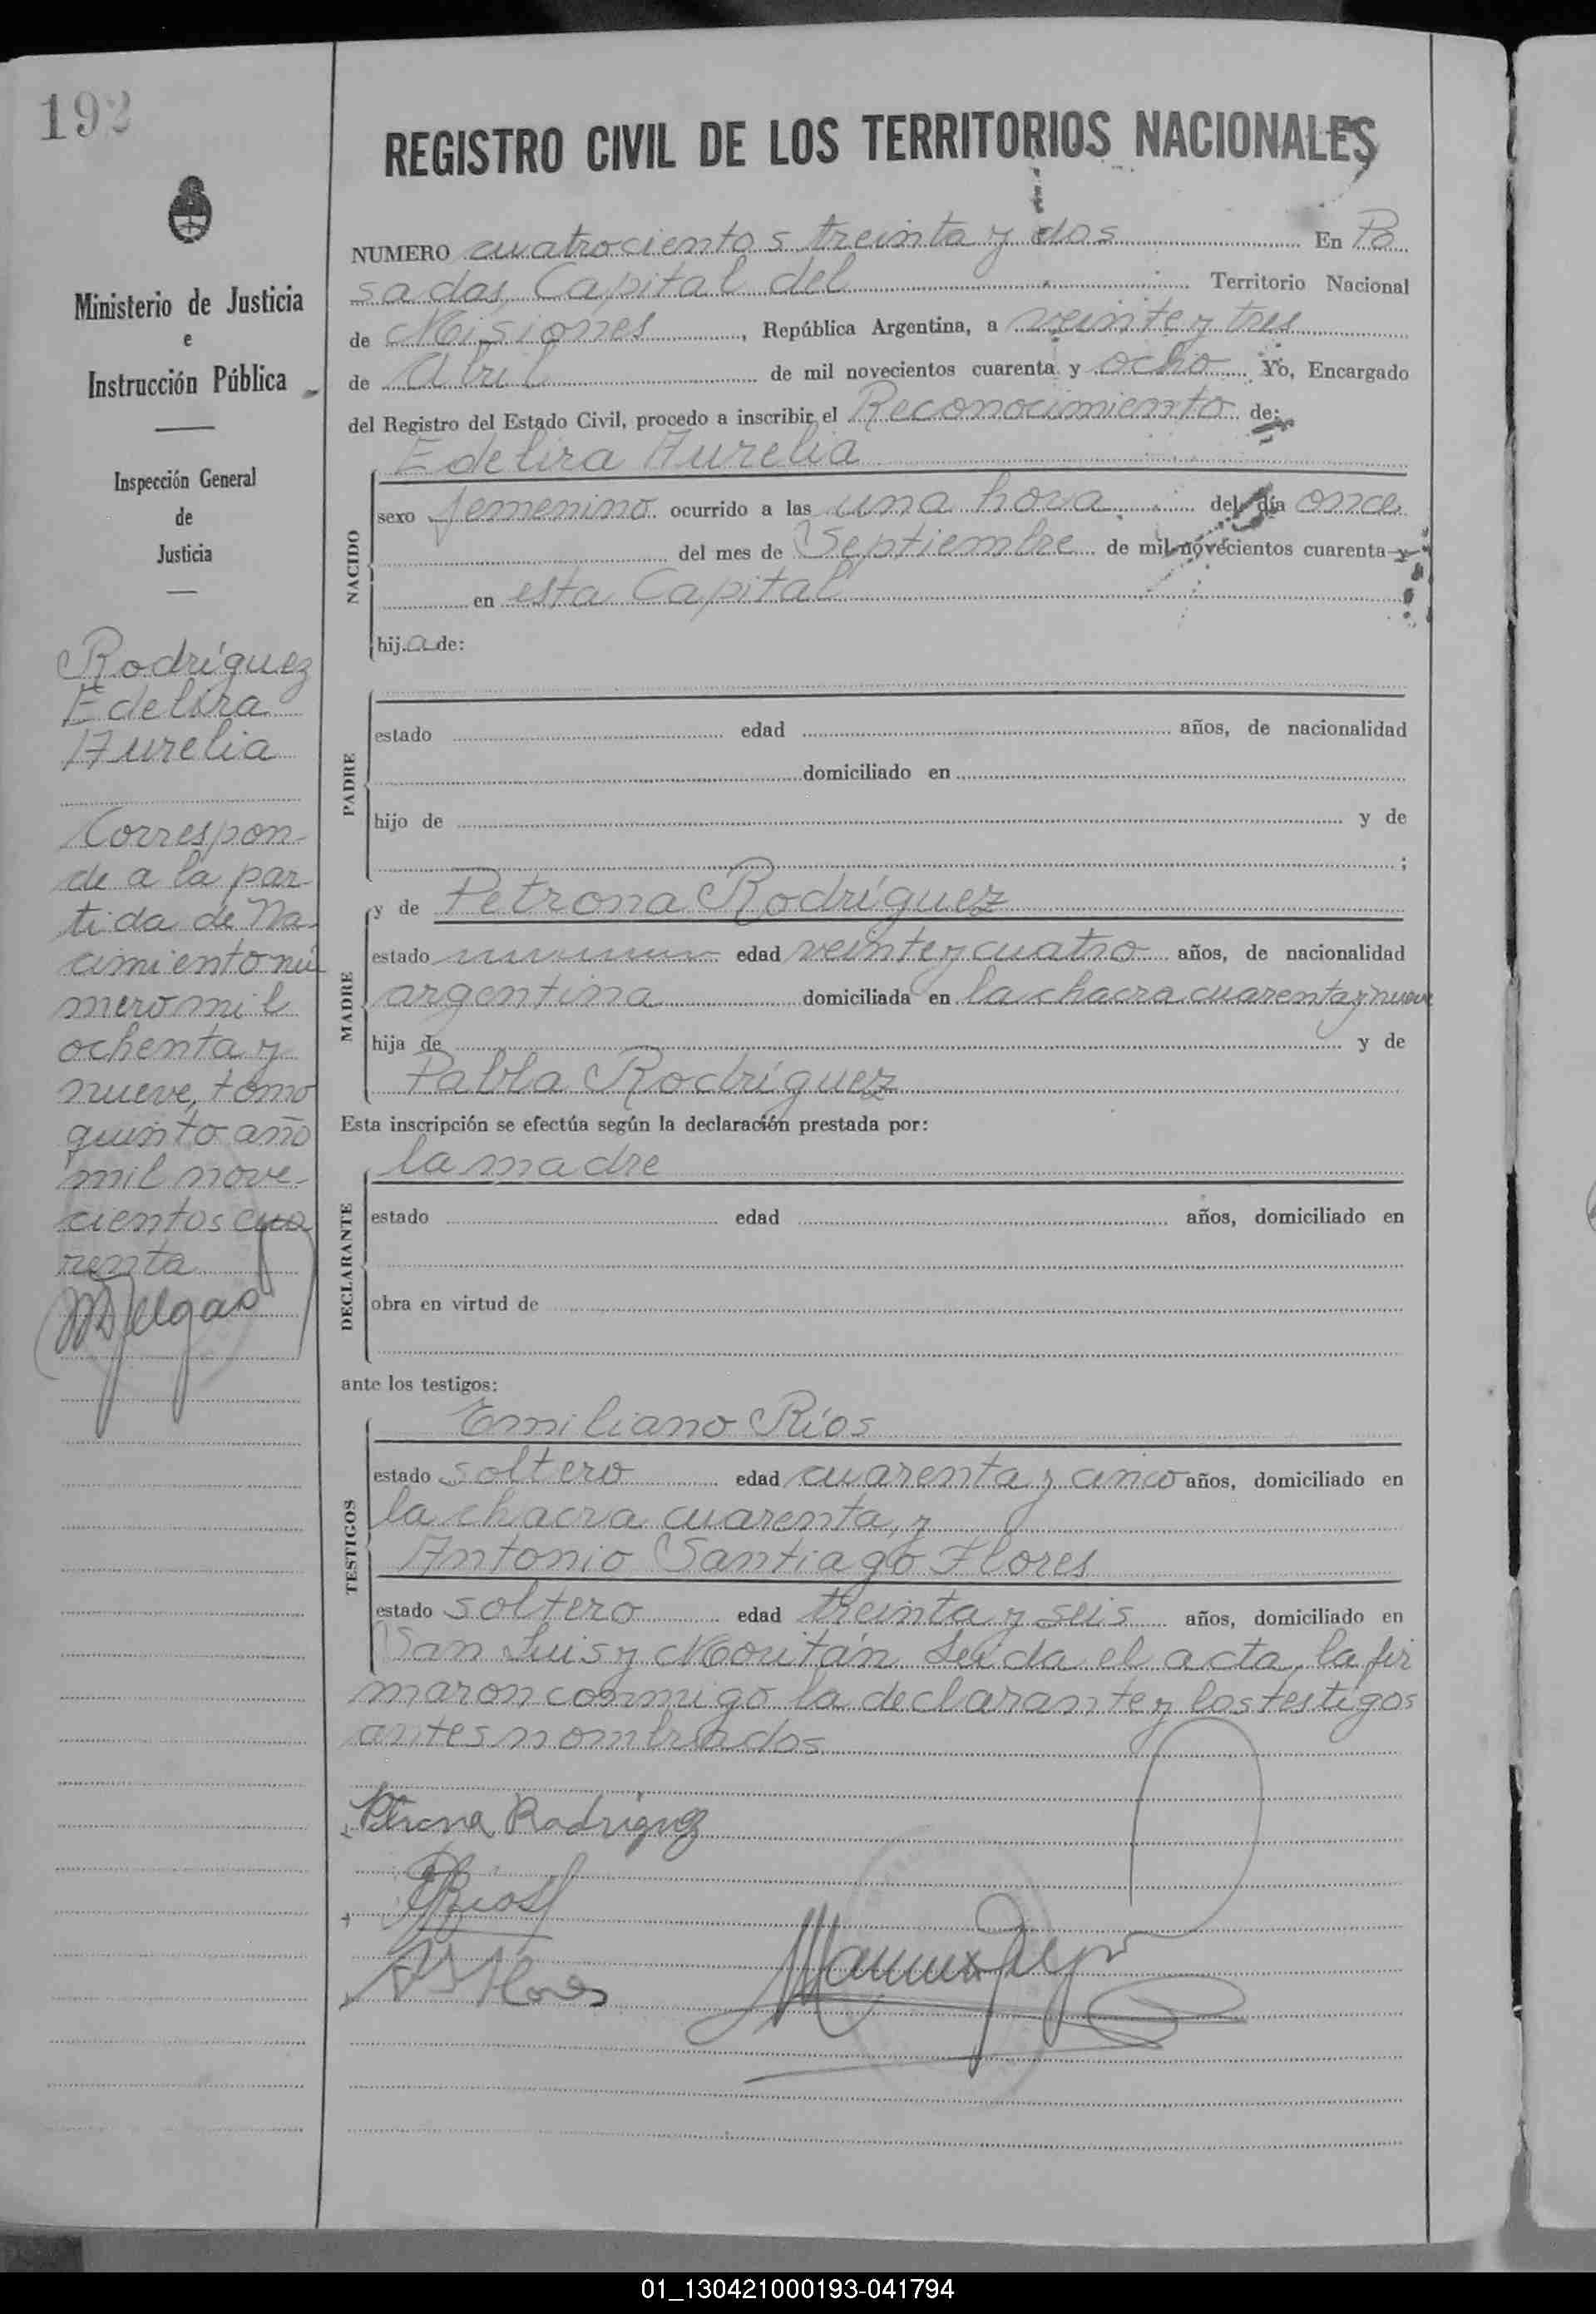 192
REGISTRO CIVIL DE LOS TERRITORIOS NACIONALES
Ministerio de Justicia
e
Instrucción Pública
Inspección General
de
Justicia
Rodríguez
Edelira
Aurelia
Correspon-
de a la par-
tida de Na-
cimiento nú
mero mil
ochenta y
nueve, tomo
quinto año
mil nove-
cientos cua
renta
NUMERO cuatrocientos treinta y dos En Po
sadas, Capital del Territorio Nacional
de Misiones, República Argentina, a veinte y tres
de Abril de mil novecientos cuarenta y ocho Yo, Encargado
del Registro del Estado Civil, procedo a inscribir el Reconocimiento de:
Edelira Aurelia
NACIDO
sexo femenino ocurrido a las una hora del día once
del mes de Septiembre de mil novecientos cuarenta y
en esta Capital
hija de:
PADRE
estado edad años, de nacionalidad
domiciliado en
hijo de y de
;
MADRE
y de Petrona Rodríguez
estado edad veinte y cuatro años, de nacionalidad
argentina domiciliada en la chacra cuarenta y nueve
hija de y de
Pabla Rodríguez
Esta inscripción se efectúa según la declaración prestada por:
la madre
DECLARANTE
estado edad años, domiciliado en
obra en virtud de
ante los testigos:
TESTIGOS
Emiliano Ríos
estado soltero edad cuarenta y cinco años, domiciliado en
la chacra cuarenta, y
Antonio Santiago Flores
estado soltero edad treinta y seis años, domiciliado en
San Luis y Moritán Leída el acta, la fir
maron conmigo la declarante y los testigos
antes nombrados
Petrona Rodriguez
ERios
A S Flores
01_130421000193-041794